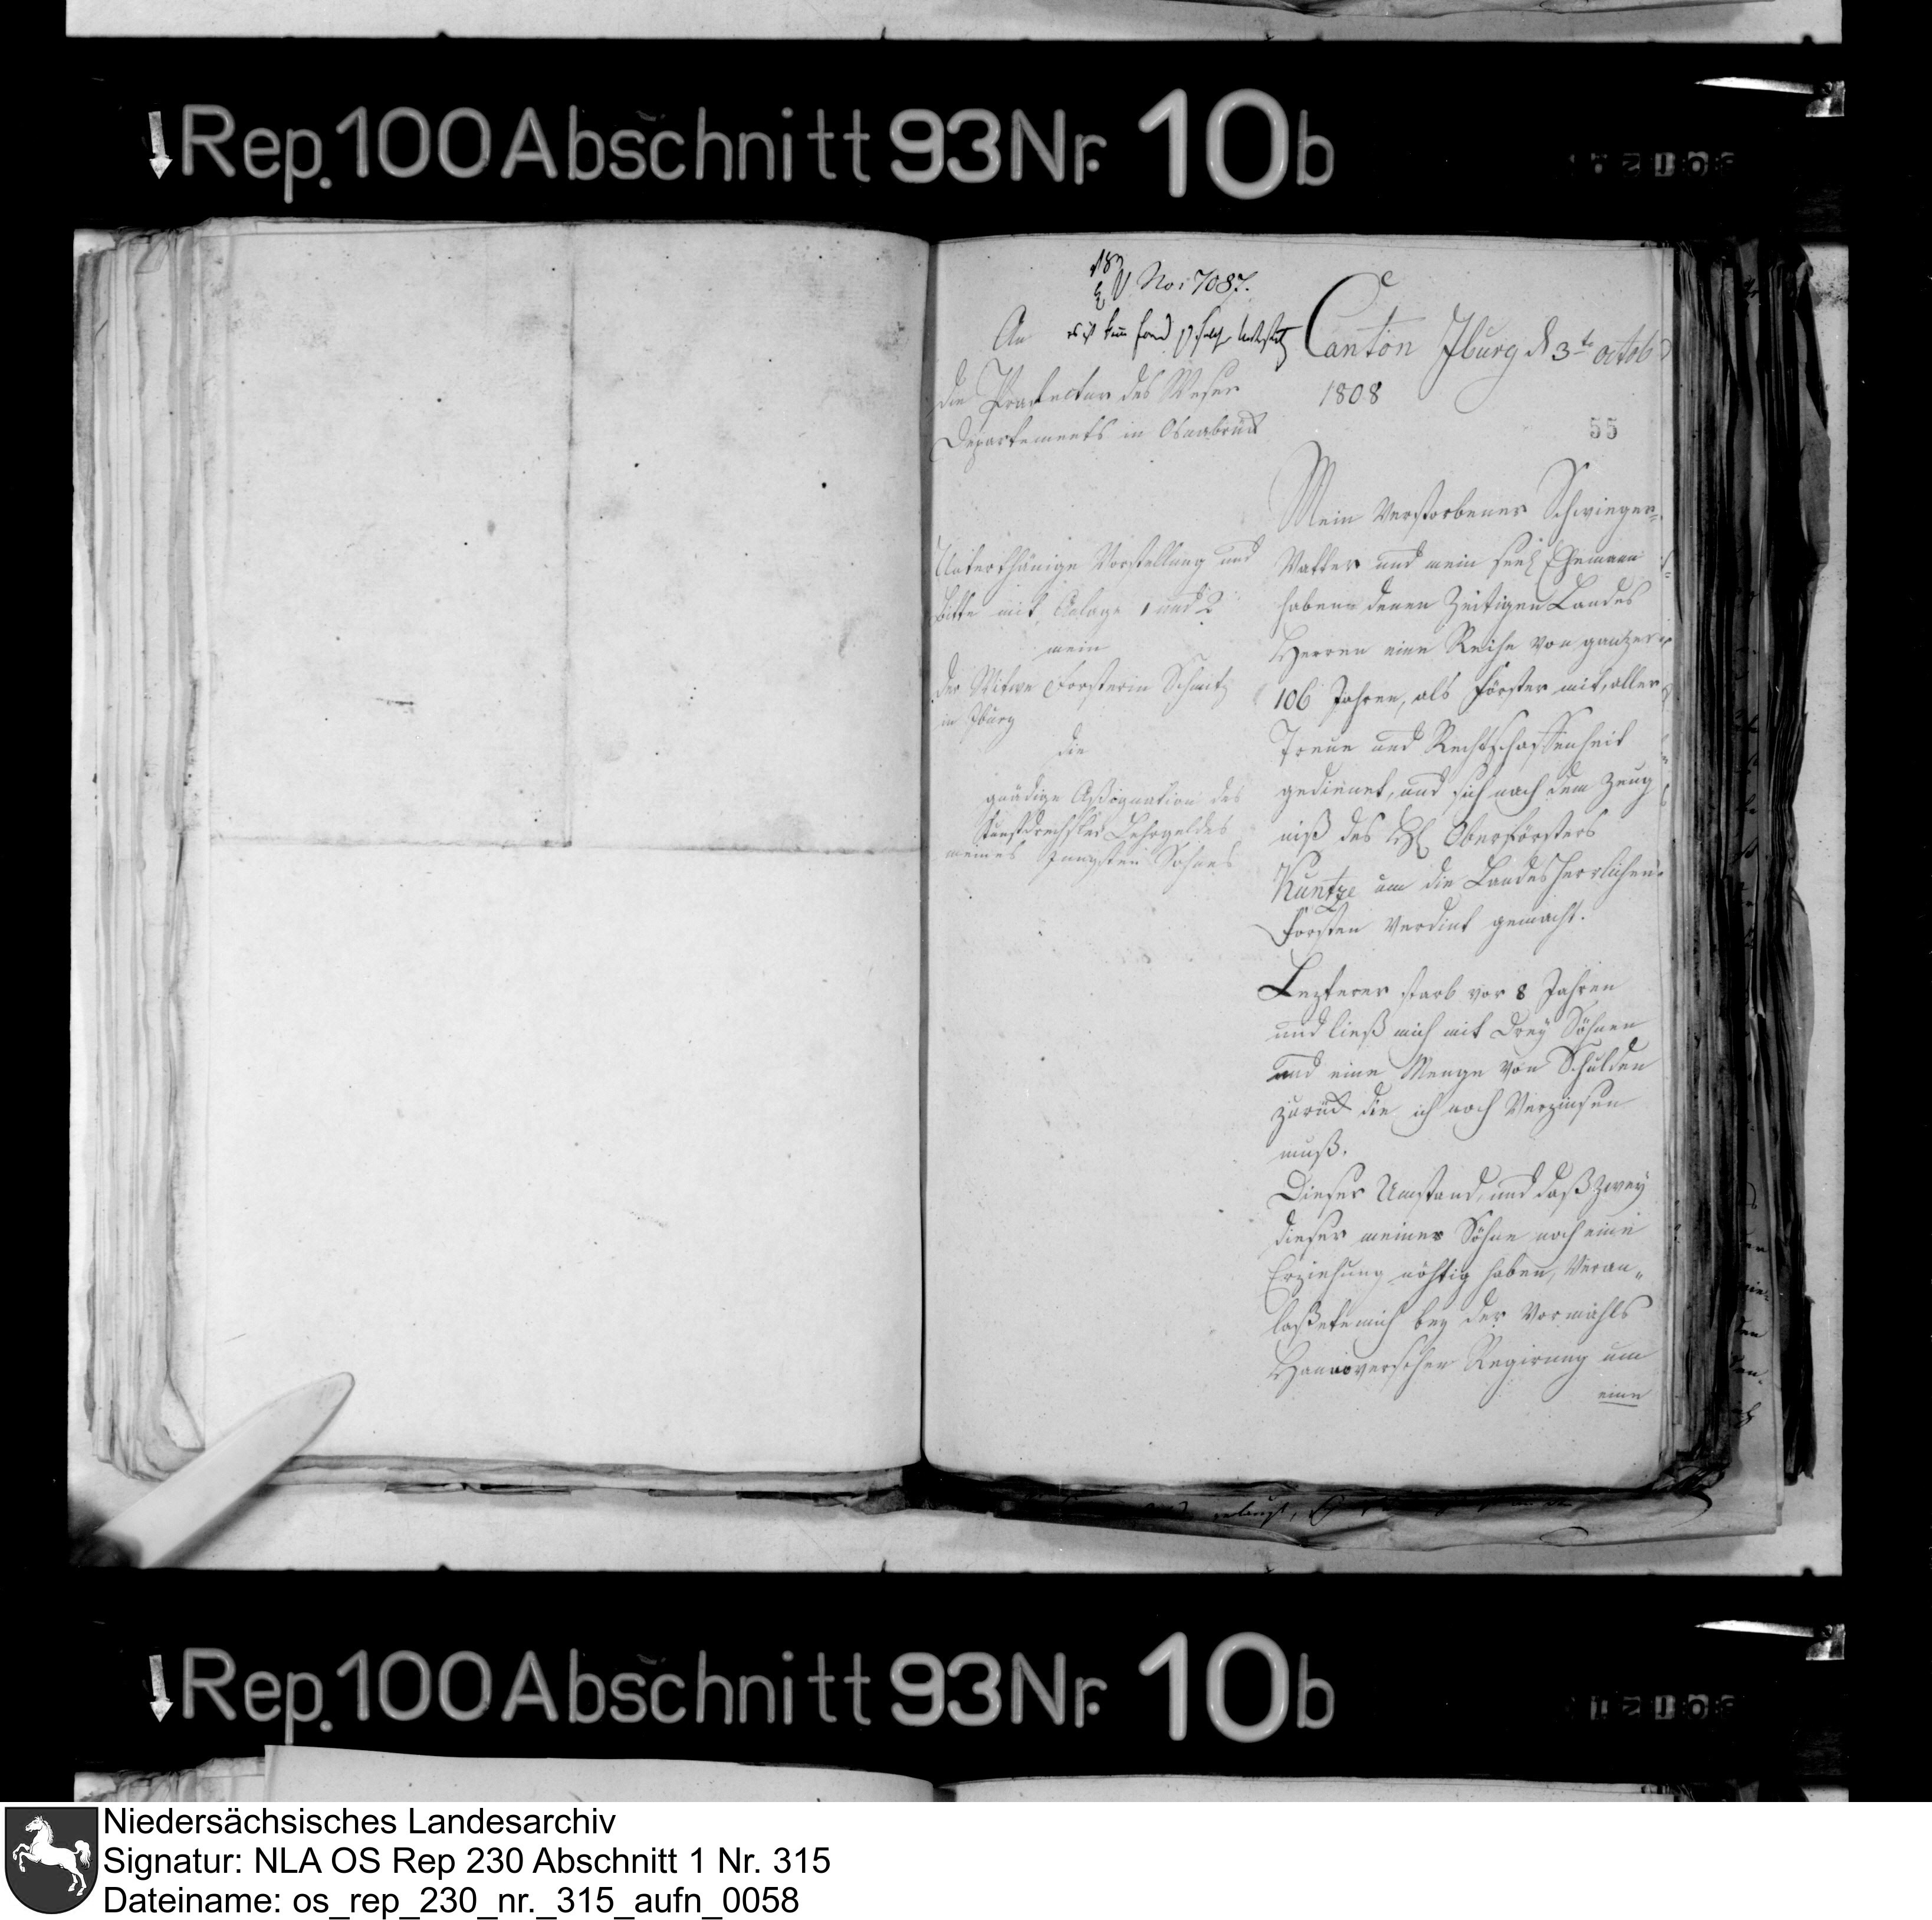 Rep. 100 Abschnitt 93 Nr. 10b
No: 7087.
An
die Praefectur des Weser
Departements in Osnabrück
Unterthänige Vorstellung und
Bitte mit Anlage 1 und 2
mein
der Witwe Försterin Schmitz
in Iburg
die
gnädige Aßignation des
Kunstdrechsler Lehrgeldes
meines Jüngsten Sohnes
Canton Iburg d 3te octob
1808
55
Mein Verstorbener Schwieger-
Vatter und mein seel Ehemann
haben denen Zeitigen Landes
Herren eine Reihe von ganzer
106 Jahren, als Förster mit, aller
Treue und Rechtschaffenheit
gedienet, und sich nach dem Zeug
niß des H Oberförsters
Kuntze um die Landesherrlichen
Forsten Verdint gemacht.
Lezterer starb vor 8 Jahren
und ließ mich mit Drey Söhnen
und eine Menge von Schulden
zurück die ich noch Verzinsen
muß.
Dieser Umstand, und daß zwey
dieser meiner Söhne noch eine
Erziehung nöhtig haben, Veran„
laßete mich bey der Vormahls
Hannoverschen Regirung um
eine
Rep. 100 Abschnitt 93 Nr. 10b
Niedersächsisches Landesarchiv
Signatur: NLA OS Rep 230 Abschnitt 1 Nr. 315
Dateiname: os_rep_230_nr._315_aufn_0058